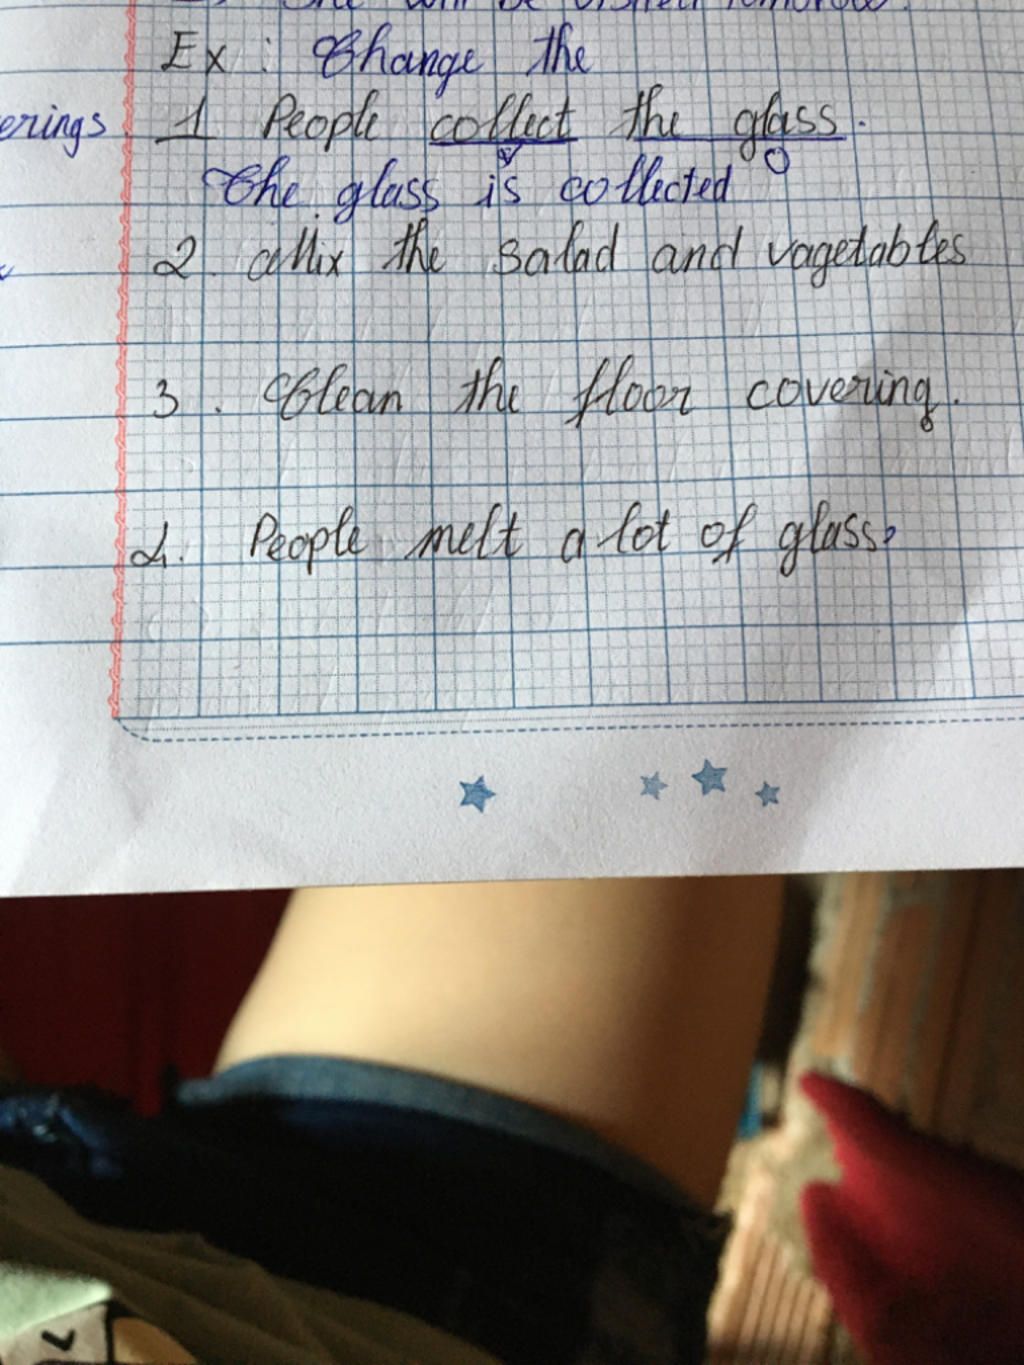 Ex: Change the
erings
1 People collect the glass.
V O
The glass is collected
2. Mix the salad and vagetables
3. Clean the floor covering.
4. People melt a lot of glass.